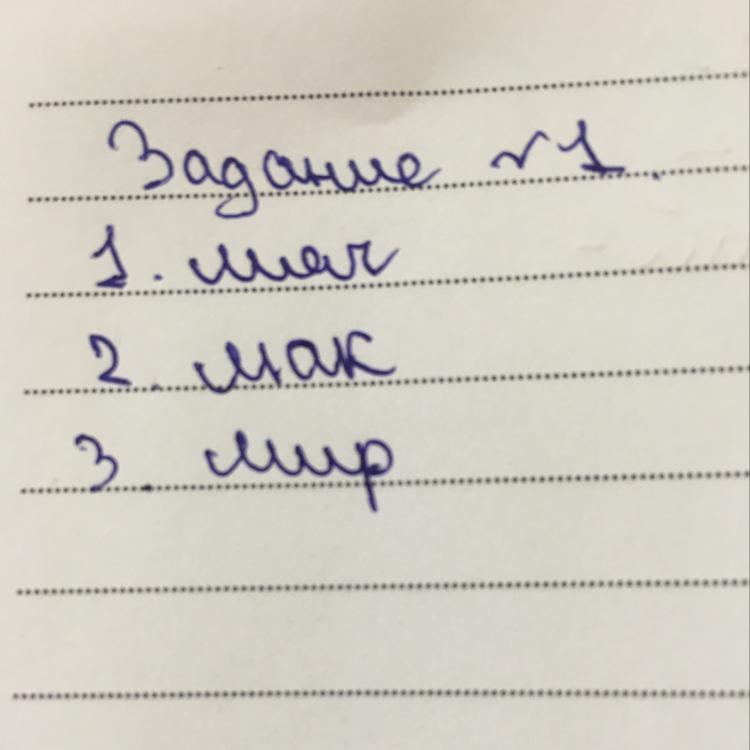 Задание №1.
1. мяч
2. мак
3. мир